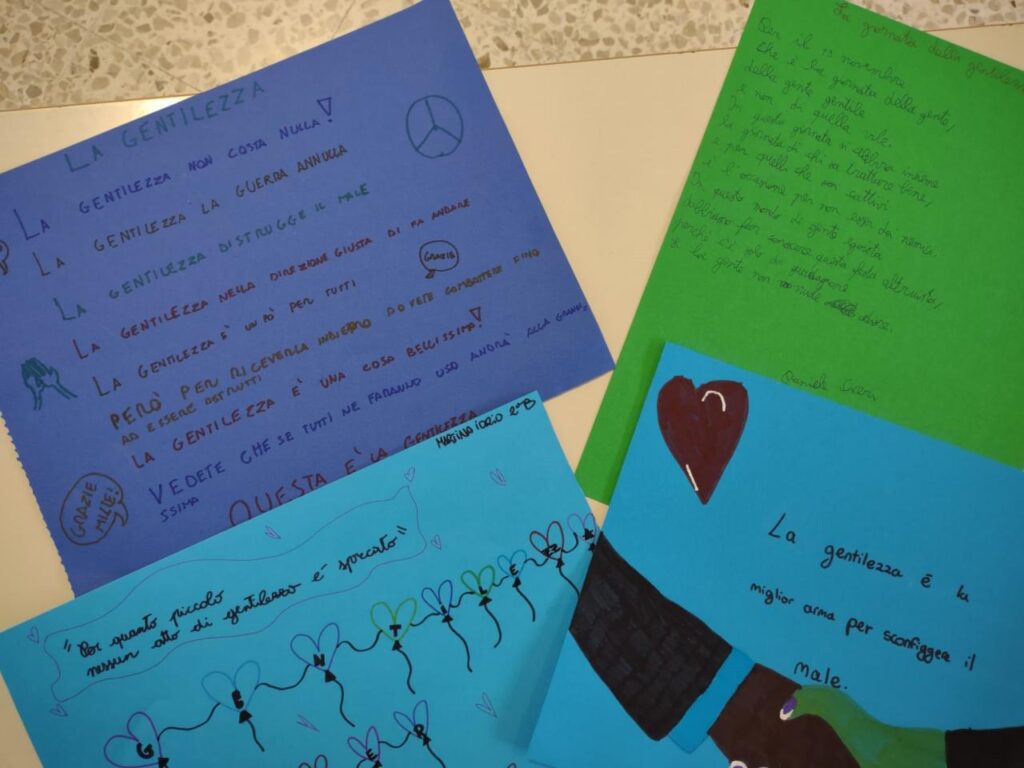 LA GENTILEZZA
LA GENTILEZZA NON COSTA NULLA!
LA GENTILEZZA LA GUERRA ANNULLA
LA GENTILEZZA DISTRUGGE IL MALE
LA GENTILEZZA NELLA DIREZIONE GIUSTA DI FA ANDARE
LA GENTILEZZA E' UN PO' PER TUTTI
GRAZIE
PERÒ PER RICEVERLA INDIETRO DOVETE COMBATTERE FINO
AD ESSERE DISTRUTTI
LA GENTILEZZA E' UNA COSA BELLISSIMA!
VEDETE CHE SE TUTTI NE FARANNO USO ANDRÀ ALLA GRANDI
SSIMA
QUESTA E' LA GENTILEZZA
GRAZIE
MILLE!
La giornata della gentilezza
Per il 13 novembre
che è la giornata della gente,
della gente gentile
e non di quella vile.
In questa giornata si abbina insieme
la giornata di chi sa trattare bene,
e per quelli che son cattivi
è l'occasione per non esser da
In questo mondo di gente egoista
dobbiamo far conoscere questa festa altruista,
perché c'è solo da guadagnare
e la gente non vuole
Daniele
MARTINA IORIO 2ªB
"Per quanto piccolo
nessun atto di gentilezza é sprecato"
GENTILEZZA
ER
La gentilezza é la
miglior arma per sconfiggere il
male.